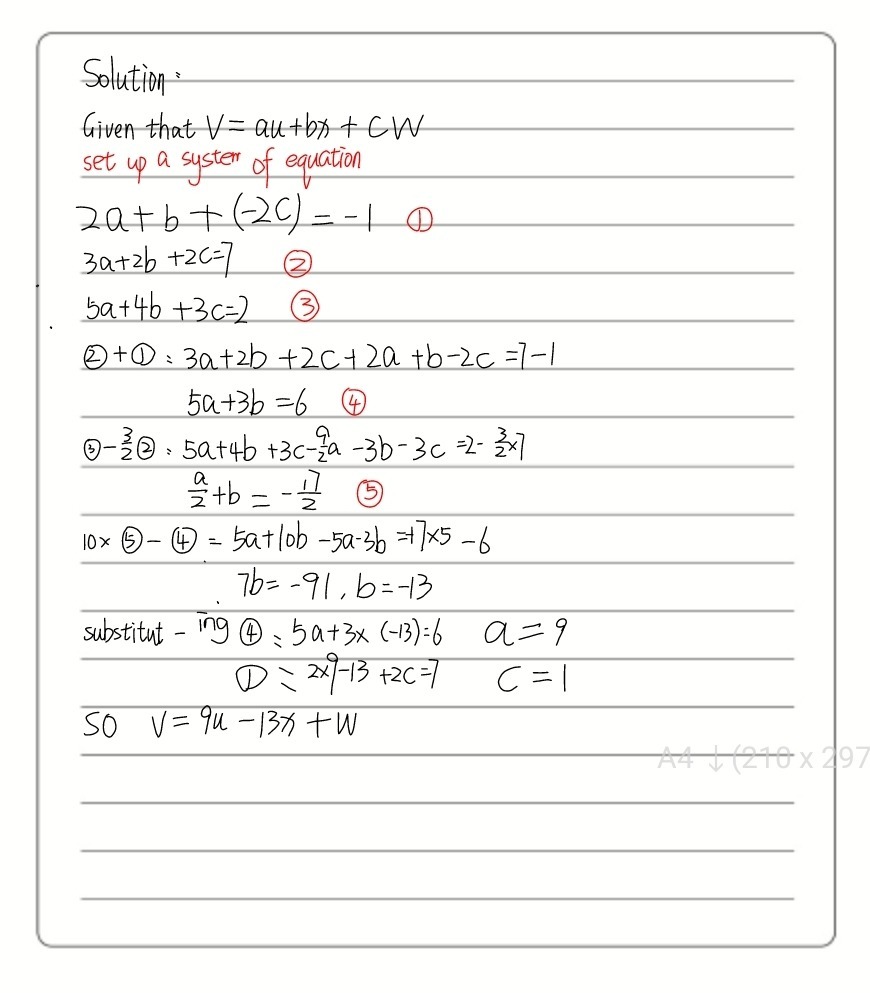 Solution:
Given that V = au+bx + CW
set up a system of equation
2a+b+(-2C) = -1 ①
3a+2b +2c=7 ②
5a+4b +3c=2 ③
②+①: 3a+2b +2c+2a +b-2c =7-1
5a+3b =6 ④
③-3/2②: 5a+4b +3c-9/2a -3b-3c =2-3/2×7
a/2+b = -17/2 ⑤
10× ⑤-④ = 5a+10b -5a-3b =-17×5 -6
7b= -91, b=-13
substitut - ing ④: 5a+3x (-13)=6 a=9
①: 2×9-13 +2c=7 C=1
SO V=9u-13x+W
A4 ↓(210 x 297